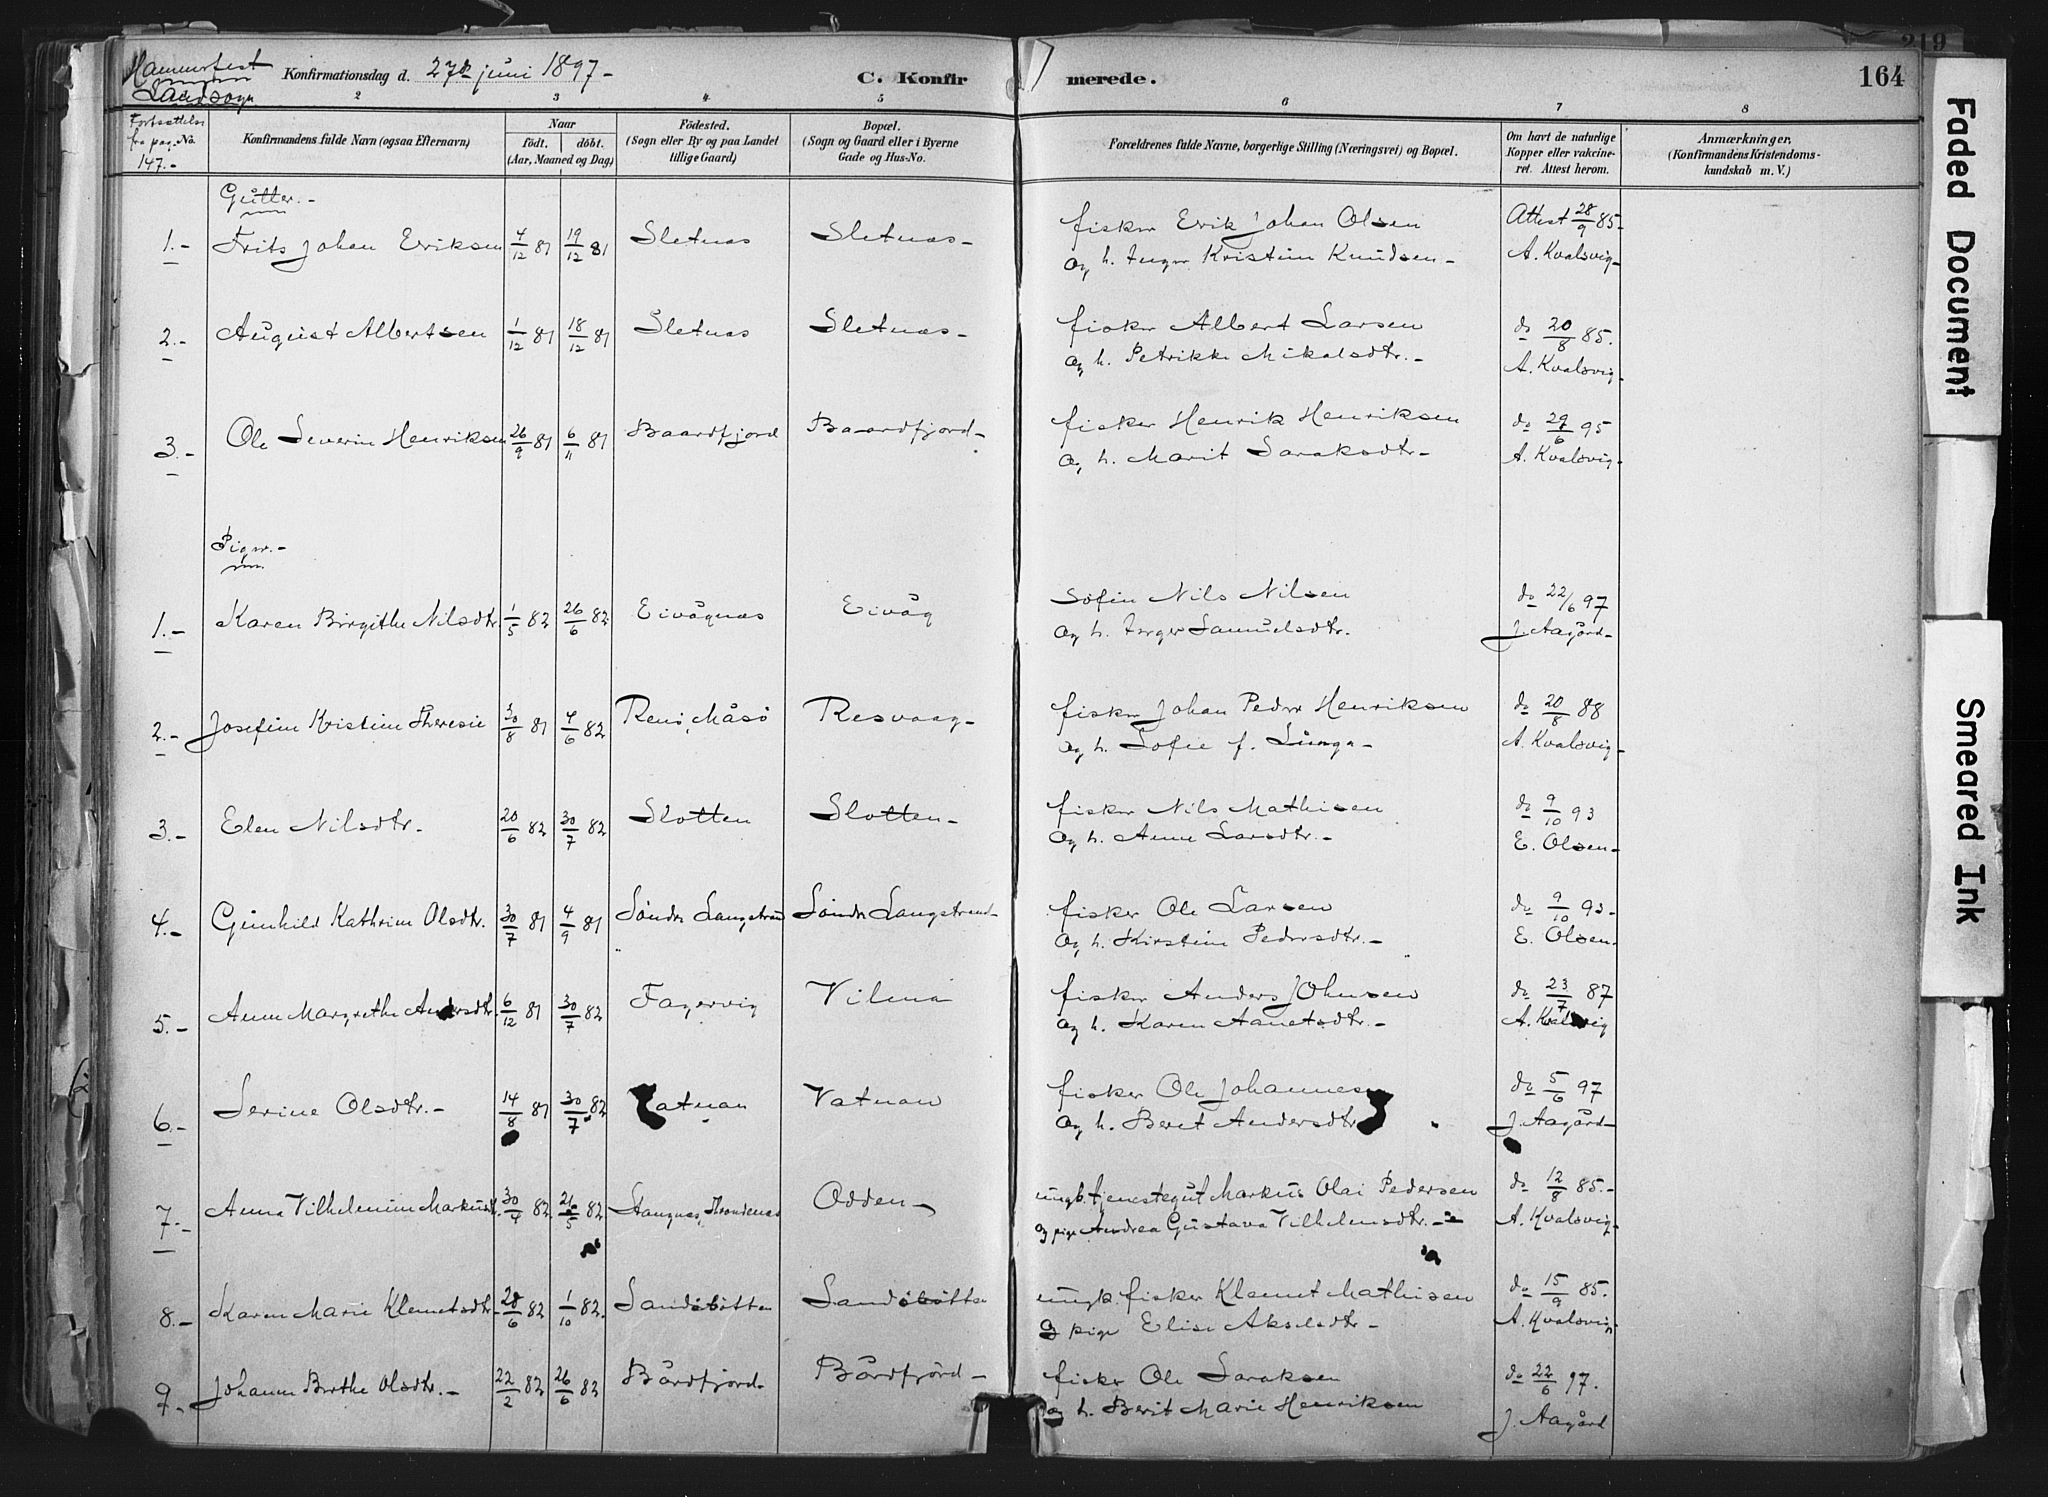 Hammerfest
Landsogn
Konfirmationsdag d. 27de juni 1897-
C. Konfirmerede.
219
164
2 3 4 5 6 7 8
Fortsættelse fra pag. 147.-
No.
Konfirmandens fulde Navn (ogsaa Efternavn)
Naar
født. døbt.
(Aar, Maaned og Dag)
Fødested.
(Sogn eller By og paa Landet tillige Gaard)
Bopæl.
(Sogn og Gaard eller i Byerne Gade og Hus-No.
Forældrenes fulde Navne, borgerlige Stilling (Næringsvei) og Bopæl.
Om havt de naturlige Kopper eller vakcineret. Attest herom.
Anmærkninger.
(Konfirmandens Kristendomskundskab m. V.)
Gutter.-
1.- Frits Johan Eriksen 4/12 81 19/12 81 Sletnes Sletnes- fisker Erik Johan Olsen Attest 28/9 85-
og h. Inger Kristine Knudsen- A. Kvalsvig-
2.- August Albertsen 1/12 81 18/12 81 Sletnes Sletnes- fisker Albert Larsen do 20/8 85.
og h. Petrikke Mikalsdtr.- A. Kvalsvig-
3.- Ole Severin Henriksen 26/9 81 6/11 81 Baardfjord Baardfjord- fisker Henrik Henriksen do 29/6 95
og h. Marit Saraksdtr- A. Kvalsvig-
Piger.-
1.- Karen Birgithe Nilsdtr. 1/5 82 26/6 82 Eivågnes Eivåg Søfin Nils Nilsen do 22/6 97
og h. Inger Samuelsdtr. J. Aagård-
2.- Josefine Kristine Theresie 30/8 81 4/6 82 Renø, Måsø Resvaag- fisker Johan Peder Henriksen do 20/8 88
og h. Sofie f. Lunga- A. Kvalsvig-
3.- Elen Nilsdtr.- 20/6 82 30/7 82 Slotten Slotten- fisker Nils Mathisen do 9/10 93
og h. Anne Larsdtr.- E. Olsen-
4.- Gunhild Kathrine Olsdtr. 30/7 81 4/9 81 Søndre Langstrand Søndre Langstrand- fisker Ole Larsen do 9/10 93-
og h. Kirstine Pedersdtr.- E. Olsen.
5.- Anne Margrethe Andersdtr. 6/12 81 30/7 82 Fagervig Vilnes fisker Anders Johnsen do 23/7 87
og h. Karen Aanetsdtr.- A. Kvalsvig
6.- Serine Olsdtr.- 14/8 81 30/7 82 Vatnan Vatnan fisker Ole Johannesen do 5/6 97
og h. Beret Andersdtr J. Aagård-
7.- Anna Vilhelmine Markusdtr. 30/4 82 26/5 82 Stangnes, Throndenes Odden- ungk. tjenestegut Markus Olai Pedersen do 12/8 85.-
og pige Andrea Gustava Vilhelmsdtr.- A. Kvalsvig-
8.- Karen Marie Klemetsdtr- 28/6 82 1/10 82. Sandsbøtten Sandsbøtten ungk. fisker Klemet Mathisen do 15/9 85.
og pige Elise Akselsdtr- A. Kvalsvig
9.- Johanne Berthe Olsdtr.- 22/2 82 26/6 82 Bårdfjord- Bårdfjord- fisker Ole Saraksen do 22/6 97.
og h. Berit Marie Henriksen J. Aagård
Faded Document
Smeared Ink